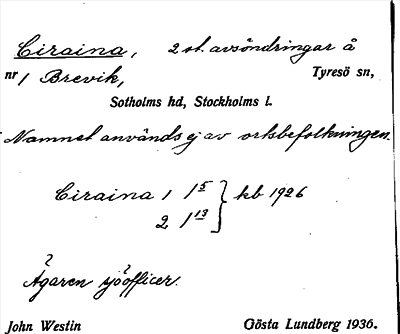 Ciraina, 2 st. avsöndringar å
nr 1 Brevik, Tyresö sn,
Sotholms hd, Stockholms l.
Namnet används ej av ortsbefolkningen.
Ciraina 1 1 15 } kb 1926
2 1 13
? ?
Ägaren sjöofficer.
John Westin Gösta Lundberg 1936.